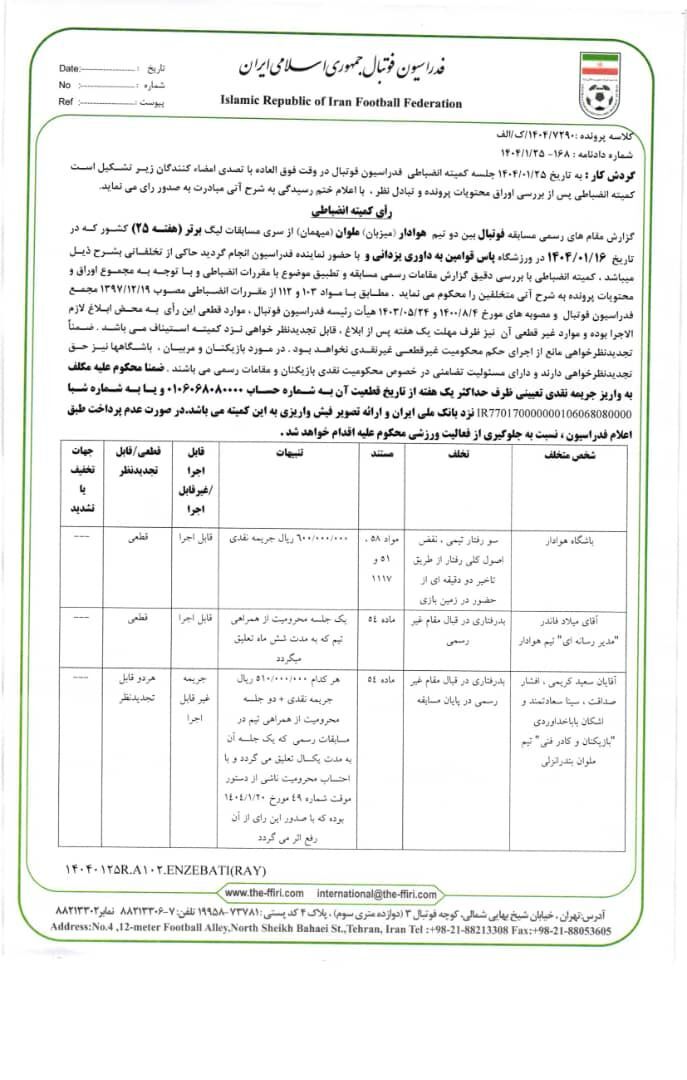 فدراسیون فوتبال جمهوری اسلامی ایران
Islamic Republic of Iran Football Federation
Date:.................. : تاریخ
No :.................. : شماره
Ref :.................. : پیوست
کلاسه پرونده :۱۴۰۴/۷۲۹۰/ک/الف
شماره دادنامه :۱۶۸- ۱۴۰۴/۱/۲۵
گردش کار : به تاریخ ۱۴۰۴/۰۱/۲۵ جلسه کمیته انضباطی فدراسیون فوتبال در وقت فوق العاده با تصدی امضاء کنندگان زیر تشکیل است
کمیته انضباطی پس از بررسی اوراق محتویات پرونده و تبادل نظر ، با اعلام ختم رسیدگی به شرح آتی مبادرت به صدور رای می نماید.
رأی کمیته انضباطی
گزارش مقام های رسمی مسابقه فوتبال بین دو تیم هوادار (میزبان) ملوان (میهمان) از سری مسابقات لیگ برتر (هفته ۲۵) کشور که در
تاریخ ۱۴۰۴/۰۱/۱۶ در ورزشگاه پاس قوامین به داوری یزدانی و با حضور نماینده فدراسیون انجام گردید حاکی از تخلفاتی بشرح ذیل
میباشد ، کمیته انضباطی با بررسی دقیق گزارش مقامات رسمی مسابقه و تطبیق موضوع با مقررات انضباطی و با توجه به مجموع اوراق و
محتویات پرونده به شرح آتی متخلفین را محکوم می نماید . مطابق با مواد ۱۰۳ و ۱۱۲ از مقررات انضباطی مصوب ۱۳۹۷/۱۲/۱۹ مجمع
فدراسیون فوتبال و مصوبه های مورخ ۱۴۰۰/۸/۴ و ۱۴۰۳/۰۵/۲۴ هیأت رئیسه فدراسیون فوتبال ، موارد قطعی این رأی به محض ابلاغ لازم
الاجرا بوده و موارد غیر قطعی آن نیز ظرف مهلت یک هفته پس از ابلاغ ، قابل تجدیدنظر خواهی نزد کمیته استیناف می باشد . ضمناً
تجدیدنظرخواهی مانع از اجرای حکم محکومیت غیرقطعی غیرنقدی نخواهد بود . در مورد بازیکنان و مربیان ، باشگاهها نیز حق
تجدیدنظرخواهی دارند و دارای مسئولیت تضامنی در خصوص محکومیت نقدی بازیکنان و مقامات رسمی می باشند . ضمنا محکوم علیه مکلف
به واریز جریمه نقدی تعیینی ظرف حداکثر یک هفته از تاریخ قطعیت آن به شماره حساب ۰۱۰۶۰۶۸۰۸۰۰۰۰ و یا به شماره شبا
IR770170000000106068080000 نزد بانک ملی ایران و ارائه تصویر فیش واریزی به این کمیته می باشد.در صورت عدم پرداخت طبق
اعلام فدراسیون ، نسبت به جلوگیری از فعالیت ورزشی محکوم علیه اقدام خواهد شد .
شخص متخلف | تخلف | مستند | تنبیهات | قابل اجرا /غیرقابل اجرا | قطعی/قابل تجدیدنظر | جهات تخفیف یا تشدید
باشگاه هوادار | سو رفتار تیمی ، نقض اصول کلی رفتار از طریق تاخیر دو دقیقه ای از حضور در زمین بازی | مواد ۵۸ ، ۵۱ و ۱۱۱۷ | ۶۰۰/۰۰۰/۰۰۰ ریال جریمه نقدی | قابل اجرا | قطعی | ---
آقای میلاد فاندر "مدیر رسانه ای" تیم هوادار | بدرفتاری در قبال مقام غیر رسمی | ماده ۵۴ | یک جلسه محرومیت از همراهی تیم که به مدت شش ماه تعلیق میگردد | قابل اجرا | قطعی | ---
آقایان سعید کریمی ، افشار صداقت ، سینا سعادتمند و اشکان باباخداوردی "بازیکنان و کادر فنی" تیم ملوان بندرانزلی | بدرفتاری در قبال مقام غیر رسمی در پایان مسابقه | ماده ۵۴ | هر کدام ۵۱۰/۰۰۰/۰۰۰ ریال جریمه نقدی + دو جلسه محرومیت از همراهی تیم در مسابقات رسمی که یک جلسه آن به مدت یکسال تعلیق می گردد و با احتساب محرومیت ناشی از دستور موقت شماره ۴۹ مورخ ۱۴۰۴/۱/۲۰ بوده که با صدور این رای از آن رفع اثر می گردد | جریمه غیر قابل اجرا | هردو قابل تجدیدنظر | ---
۱۴۰۴۰۱۲۵R.A۱۰۲.ENZEBATI(RAY)
www.the-ffiri.com international@the-ffiri.com
آدرس:تهران، خیابان شیخ بهایی شمالی، کوچه فوتبال ۳ (دوازده متری سوم) ، پلاک ۴ کد پستی : ۷۳۷۸۱-۱۹۹۵۸ تلفن: ۷-۸۸۲۱۳۳۰۶ نمابر ۸۸۲۱۳۳۰۲
Address:No.4 ,12-meter Football Alley,North Sheikh Bahaei St.,Tehran, Iran Tel :+98-21-88213308 Fax:+98-21-88053605